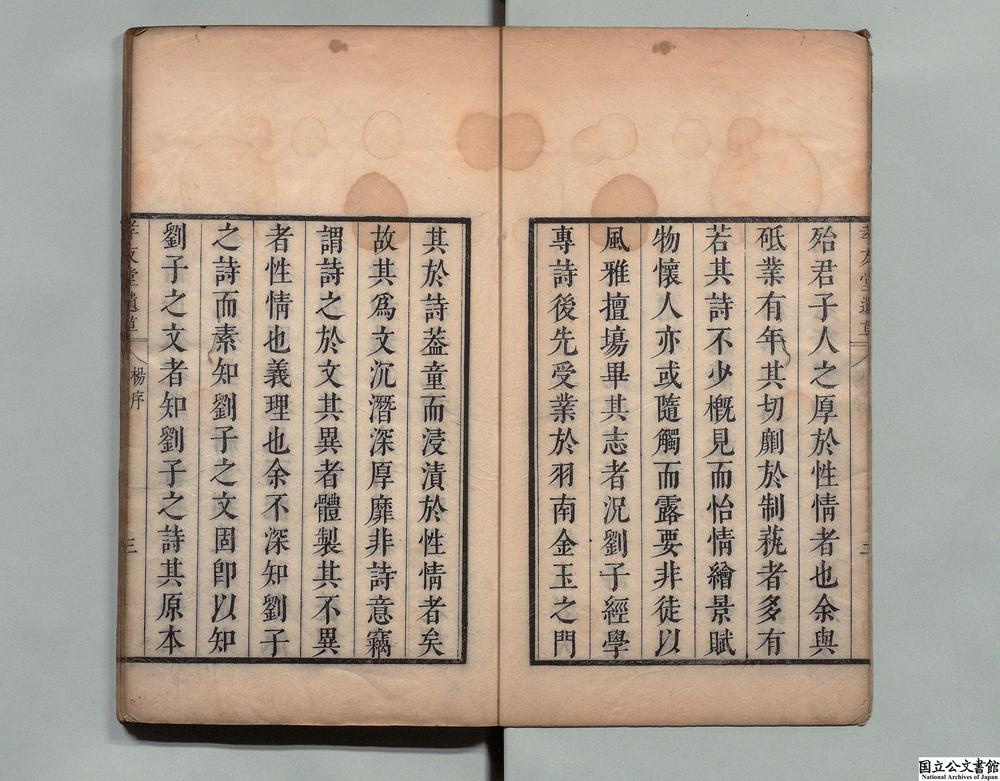 殆君子人之厚於性情者也余與
砥業有年其切劘於制蓺者多有
若其詩不少槪見而怡情繪景賦
物懷人亦或隨觸而露要非徒以
風雅擅場畢其志者況劉子經學
專詩後先受業於羽南金玉之門
其於詩葢童而浸漬於性情者矣
故其爲文沉潛深厚靡非詩意竊
謂詩之於文其異者體製其不異
者性情也義理也余不深知劉子
之詩而素知劉子之文固卽以知
劉子之文者知劉子之詩其原本
孝友堂遺草
楊序
三
国立公文書館
National Archives of Japan